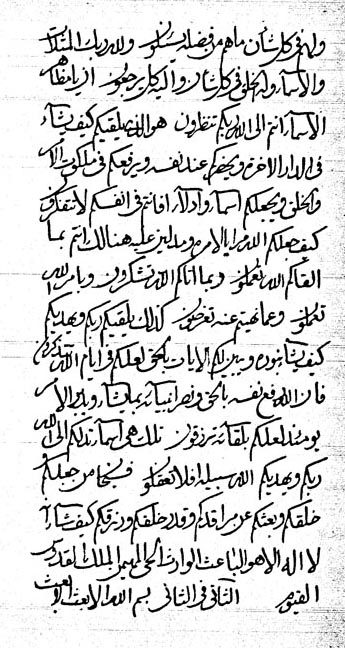 ولهم في كل شأن ما هم من فضله يسئلون ولله ربك
والاسماء وله الخلق في كل شأن واليه كل يرجعون ان يا مظاهر
الاسماء انتم الى الله ربكم تنظرون هو الذي يلقيكم كيف يشاء
في الدار الاخرة ويحضركم عند نفسه ويرفعكم في ملكوت الامر
والخلق ويجعلكم اسماء وادلاء افانتم في انفسكم لا تتفكرون
كيف جعلكم الله مرايا لامره ومدلين عليه هنالك انتم بما
القاكم الله تعملون وبما اتاكم الله تشكرون وبامر الله
تعملون وعما نهيتم عنه تعرضون كذلك يلقيكم ربكم ويهديكم
كيف يشاء بنوره ويبين لكم الايات بالحق لعلكم في ايام الله تتذكرون
فان الله رفع نفسه بالحق ونصر انبيائه بما يشاء ويدبر الامر
يومئذ لعلكم بلقائه ترزقون تلك هي اسماء تدلكم الى الله
ربكم ويهديكم الله سبيله افلا تعقلون فسبحان من جعلكم و
خلقكم وبعثكم عن مراقدكم وقدر خلقكم ورزقكم كيف شاء
لا اله الا هو الباعث الوارث الحي المهيمن الملك القدوس
القيوم الثاني في الثاني بسم الله الابعث الابعث